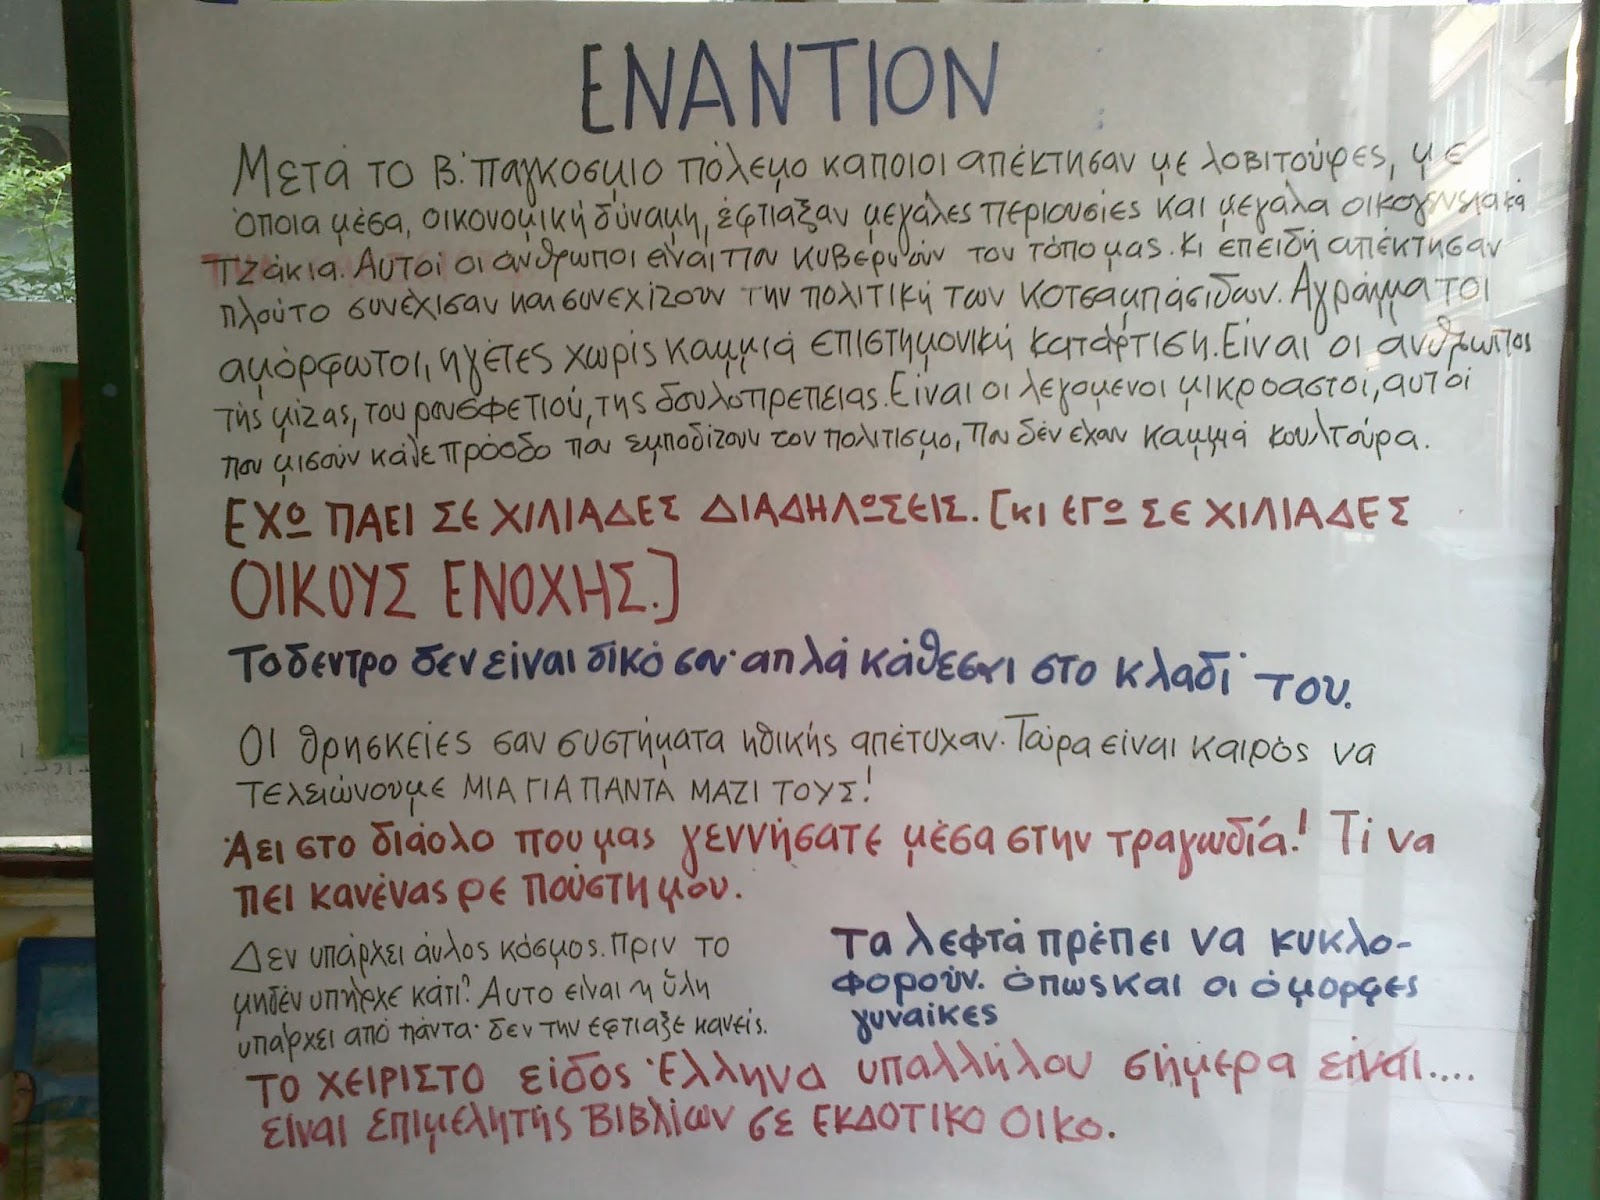 ΕΝΑΝΤΙΟΝ
Μετά το Β.' παγκοσμιο πόλεμο καποιοι απέκτησαν με λοβιτούρες, με
όποια μέσα, οικονομική δύναμη, έφτιαξαν μεγάλες περιουσίες και μεγάλα οικογενειακά
τζάκια. Αυτοι οι άνθρωποι είναι που κυβερνούν τον τόπο μας. Κι επειδή απέκτησαν
πλούτο συνέχισαν και συνεχίζουν την πολιτική των κοτσαμπάσιδων. Αγράμματοι
αμόρφωτοι, ηγέτες χωρίς καμμιά επιστημονική κατάρτιση. Είναι οι ανθρωποι
της μίζας, του ρουσφετιού, της δουλοπρεπειας. Είναι οι λεγομενοι μικροαστοί, αυτοί
που μισούν κάθε πρόοδο που εμποδίζουν τον πολιτισμο, που δέν εχουν καμμιά κουλτούρα.
ΕΧΩ ΠΑΕΙ ΣΕ ΧΙΛΙΑΔΕΣ ΔΙΑΔΗΛΩΣΕΙΣ. [ΚΙ ΕΓΩ ΣΕ ΧΙΛΙΑΔΕΣ
ΟΙΚΟΥΣ ΕΝΟΧΗΣ.]
Το δεντρο δεν είναι δικό σου· απλά κάθεσαι στο κλαδί του.
Οι θρησκείες σαν συστήματα ηθικής απέτυχαν. Τώρα είναι καιρός να
τελειώνουμε ΜΙΑ ΓΙΑ ΠΑΝΤΑ ΜΑΖΙ ΤΟΥΣ!
Άει στο διάολο που μας γεννήσατε μέσα στην τραγωδία! Τί να
πει κανένας ρε πούστη μου.
Δεν υπάρχει άυλος κόσμος. Πριν το
μηδέν υπήρχε κάτι? Αυτο είναι η ύλη
υπάρχει από πάντα· δεν την εφτιαξε κανείς.
Τα λεφτά πρέπει να κυκλο-
φορούν. όπως και οι όμορφες
γυναίκες
Το χειριστο είδος Έλληνα υπαλλήλου σήμερα είναι....
είναι επιμελητής βιβλίων σε εκδοτικο οικο.